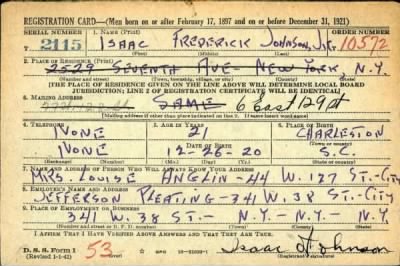 REGISTRATION CARD—(Men born on or after February 17, 1897 and on or before December 31, 1921)
SERIAL NUMBER 1. NAME (Print) ORDER NUMBER
T 2115 ISAAC FREDERICK JOHNSON, JR. 10572
2. PLACE OF RESIDENCE (Print)
2529 SEVENTH AVE NEW YORK N.Y.
(Number and street) (Town, township, village, or city) (County) (State)
[THE PLACE OF RESIDENCE GIVEN ON THE LINE ABOVE WILL DETERMINE LOCAL BOARD
JURISDICTION; LINE 2 OF REGISTRATION CERTIFICATE WILL BE IDENTICAL]
3. MAILING ADDRESS
SAME 6 East 129 St
[Mailing address if other than place indicated on line 2. If same insert word same]
4. TELEPHONE 5. AGE IN YEARS 6. PLACE OF BIRTH
NONE 21 CHARLESTON
DATE OF BIRTH
NONE 12-26-20 S.C.
(Mo.) (Day) (Yr.) (State or country)
7. NAME AND ADDRESS OF PERSON WHO WILL ALWAYS KNOW YOUR ADDRESS
MRS. LOUISE ANGLIN-44 W. 127 ST.-CITY
8. EMPLOYER'S NAME AND ADDRESS
JEFFERSON PLEATING-341 W. 38 ST.-CITY
9. PLACE OF EMPLOYMENT OR BUSINESS
341 W. 38 ST.- N.Y.- N.Y.- N.Y.
(Number and street or R. F. D. number) (Town) (County) (State)
I AFFIRM THAT I HAVE VERIFIED ABOVE ANSWERS AND THAT THEY ARE TRUE.
D. S. S. Form 1
(Revised 1-1-42) 53 Isaac Johnson